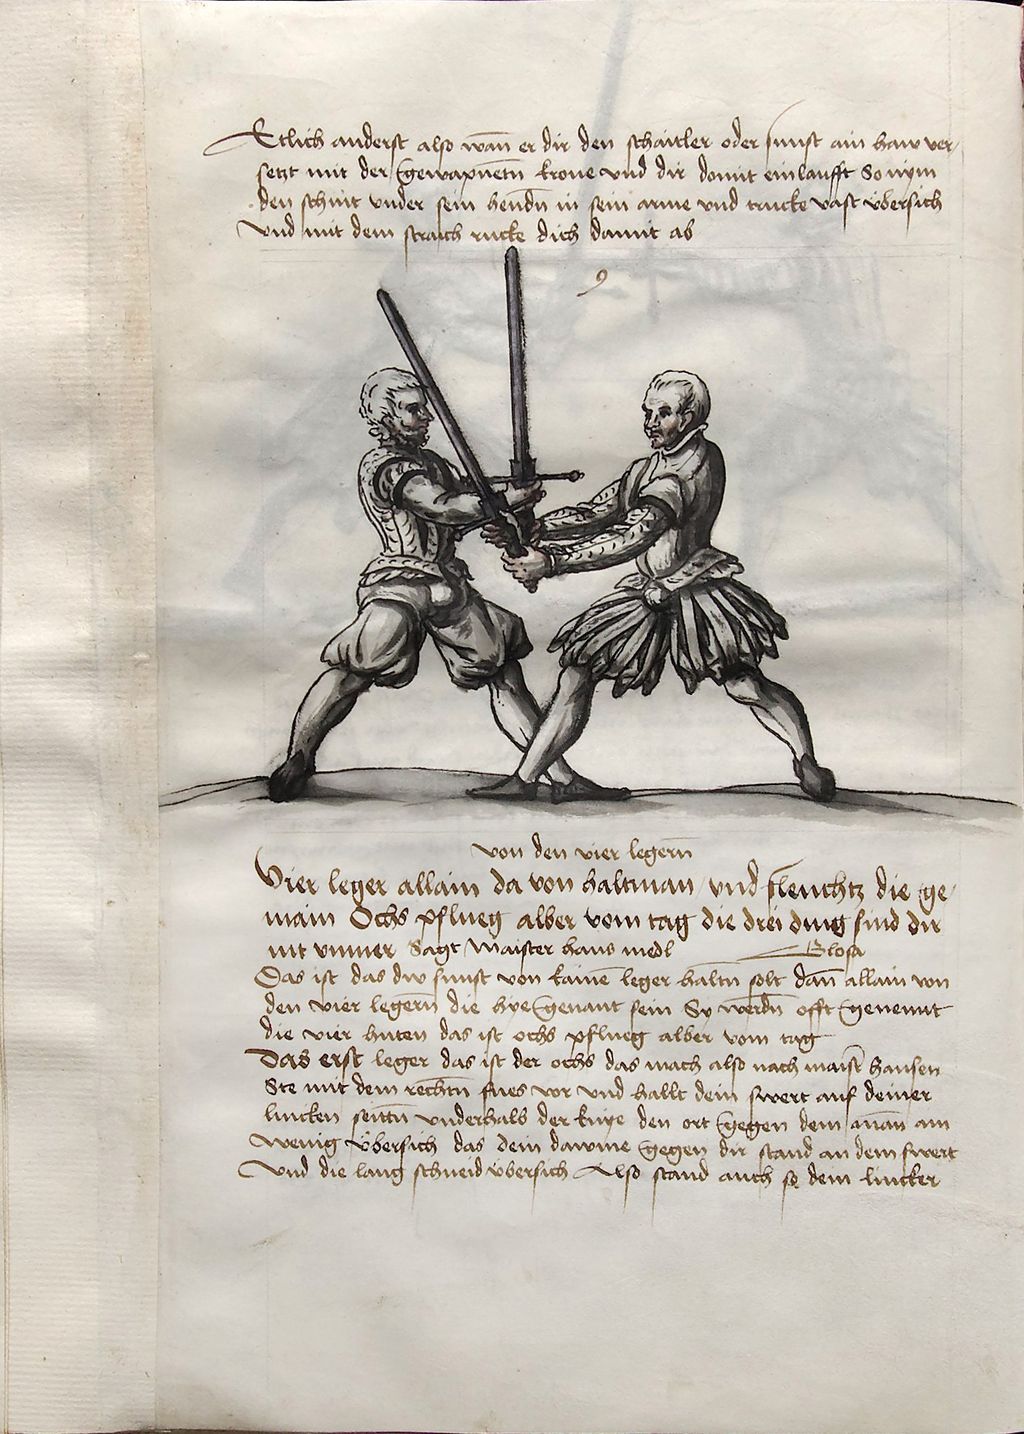 Etlich anderst also wān er dir den schaitler oder sunst ain haw ver-
setzt mit der gewapnetn̄ krone vnd dir domit einlaufft So nym
den schnit vnder sein hendn̄ in sein arme vnd trucke vast vbersich
vnd mit dem straich rucke dich damit ab
9
von den vier legern̄
Vier leger allain da von haltman / vnd fleuchtz die ge-
main Ochs pflueg alber vom tag die drei ding sind dir
nit vnmer Sagt Maister hans medl Glosa
Das ist das dw sunst von kainē leger haltn̄ solt dān allain von
den vier legern̄ die hye genant sein Sy werdn̄ offt genennt
die vier huten das ist ochs pflueg alber vom tag
Das erst leger das ist der ochs das mach also nach maistr̄ hansen
Ste mit dem rechtn̄ fues vor vnd hallt dein swert auf deiner
lincken seittn̄ vnderhalb der knye den ort gegen dem mān ain
wenig vbersich das dein dawme gegen dir stand an dem swert
Vnd die lang schneid vbersich Also stand auch so dein lincker